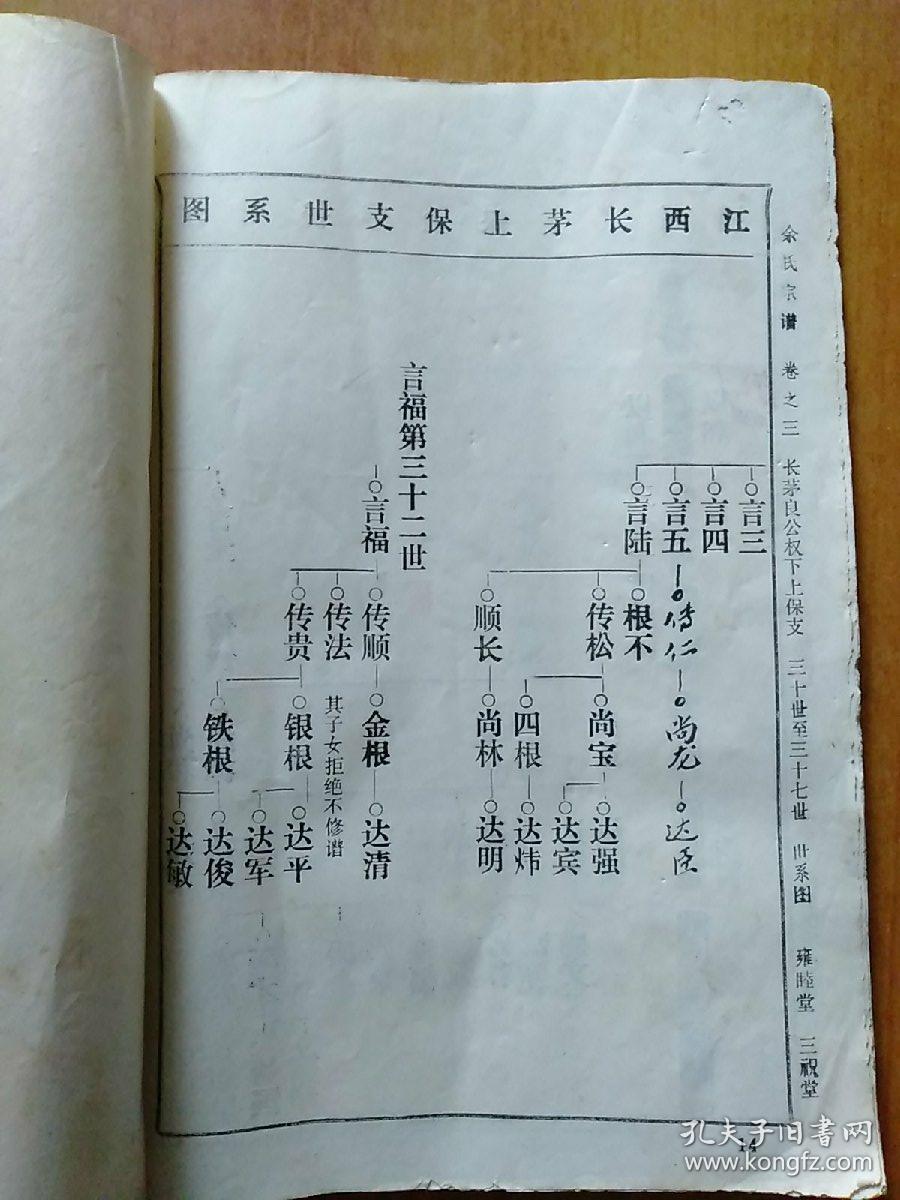 江西长茅上保支世系图
余氏宗谱 卷之三 长茅良公权下上保支 三十世至三十七世 世系图 雍睦堂 三祝堂
言三
言四
言五
言陆
传仁
尚龙
达臣
根不
传松
顺长
尚宝
四根
尚林
达强
达宾
达炜
达明
言福第三十二世
言福
传顺
传法
传贵
金根
其子女拒绝不修谱
银根
铁根
达清
达平
达军
达俊
达敏
14
孔夫子旧书网
www.kongfz.com